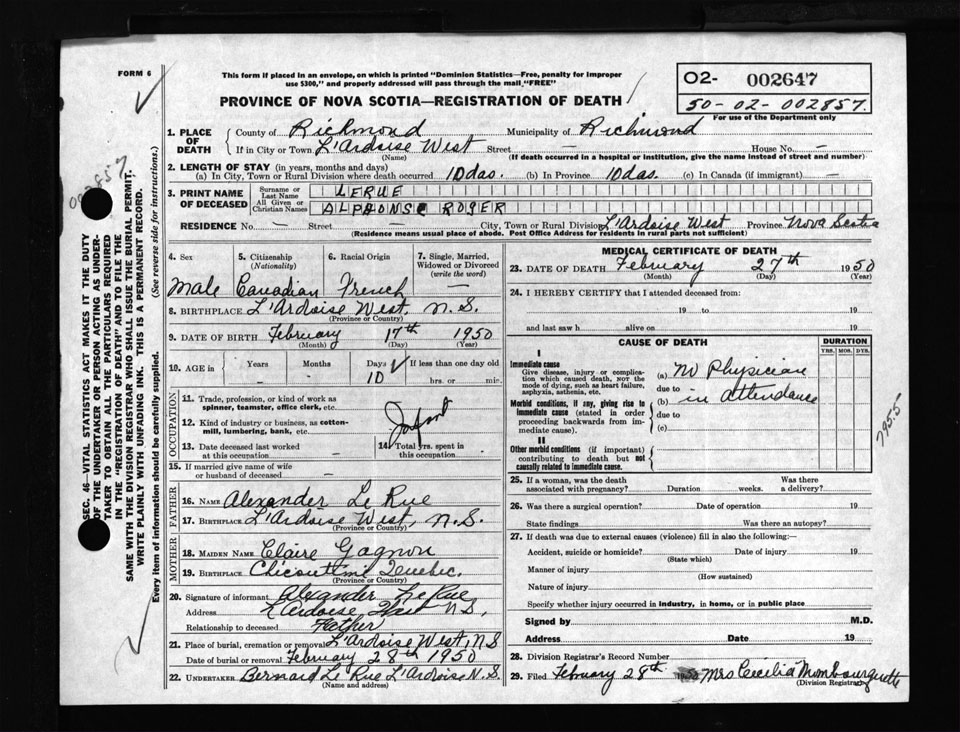 FORM 6
This form if placed in an envelope, on which is printed "Dominion Statistics—Free, penalty for improper
use $300," and properly addressed will pass through the mail "FREE"
PROVINCE OF NOVA SCOTIA—REGISTRATION OF DEATH
O2- 002647
50-02-002857.
For use of the Department only
002857
SEC. 46—VITAL STATISTICS ACT MAKES IT THE DUTY
OF THE UNDERTAKER OR PERSON ACTING AS UNDER-
TAKER TO OBTAIN ALL THE PARTICULARS REQUIRED
IN THE "REGISTRATION OF DEATH" AND TO FILE THE
SAME WITH THE DIVISION REGISTRAR WHO SHALL ISSUE THE BURIAL PERMIT.
WRITE PLAINLY WITH UNFADING INK. THIS IS A PERMANENT RECORD.
Every item of information should be carefully supplied. (See reverse side for instructions.)
1. PLACE OF DEATH
County of Richmond Municipality of Richmond
If in City or Town L'Ardoise West Street — House No. —
(Name) (If death occurred in a hospital or institution, give the name instead of street and number)
2. LENGTH OF STAY (in years, months and days)
(a) In City, Town or Rural Division where death occurred 10 das. (b) In Province 10 das. (c) In Canada (if immigrant) —
3. PRINT NAME OF DECEASED
Surname or Last Name LERUE
All Given or Christian Names ALPHONSE ROGER
RESIDENCE No. — Street — City, Town or Rural Division L'Ardoise West Province Nova Scotia
(Residence means usual place of abode. Post Office Address for residents in rural parts not sufficient)
4. Sex 5. Citizenship (Nationality) 6. Racial Origin 7. Single, Married, Widowed or Divorced (write the word)
Male Canadian French —
8. BIRTHPLACE L'Ardoise West, N.S.
(Province or Country)
9. DATE OF BIRTH February 17th 1950
(Month) (Day) (Year)
10. AGE in Years Months Days If less than one day old
- - 10 hrs. or min.
OCCUPATION
11. Trade, profession, or kind of work as
spinner, teamster, office clerk, etc.
12. Kind of industry or business, as cotton-
mill, lumbering, bank, etc.
Infant
13. Date deceased last worked
at this occupation —
14. Total yrs. spent in
this occupation
15. If married give name of wife
or husband of deceased —
FATHER
16. NAME Alexander Le Rue
17. BIRTHPLACE L'Ardoise West, N.S.
(Province or Country)
MOTHER
18. MAIDEN NAME Claire Gagnon
19. BIRTHPLACE Chicouttmi Quebec.
(Province or Country)
20. Signature of informant Alexander LeRue
Address L'Ardoise West N.S.
Relationship to deceased Father
21. Place of burial, cremation or removal L'Ardoise West, N.S
Date of burial or removal February 28th 1950
22. UNDERTAKER Bernard Le Rue L'Ardoise N.S.
(Name and address)
MEDICAL CERTIFICATE OF DEATH
23. DATE OF DEATH February 27th 1950
(Month) (Day) (Year)
24. I HEREBY CERTIFY that I attended deceased from:
19 to 19
and last saw h alive on 19
CAUSE OF DEATH DURATION
YRS. MOS. DYS.
I
Immediate cause
Give disease, injury or complica-
tion which caused death, NOT the
mode of dying, such as heart failure,
asphyxia, asthenia, etc.
(a) no Physician
due to
Morbid conditions, if any, giving rise to
immediate cause (stated in order
proceeding backwards from im-
mediate cause).
(b) in attendance
due to
(c)
II
Other morbid conditions (if important)
contributing to death but not
causally related to immediate cause.
795.5
25. If a woman, was the death
associated with pregnancy? Duration weeks. Was there
a delivery?
26. Was there a surgical operation? Date of operation 19
State findings Was there an autopsy?
27. If death was due to external causes (violence) fill in also the following:—
Accident, suicide or homicide? Date of injury 19
(State which)
Manner of injury
(How sustained)
Nature of injury
Specify whether injury occurred in industry, in home, or in public place
Signed by M.D.
Address Date 19
28. Division Registrar's Record Number
29. Filed February 28th 1950 Mrs Cecilia Mombourquette
(Division Registrar)